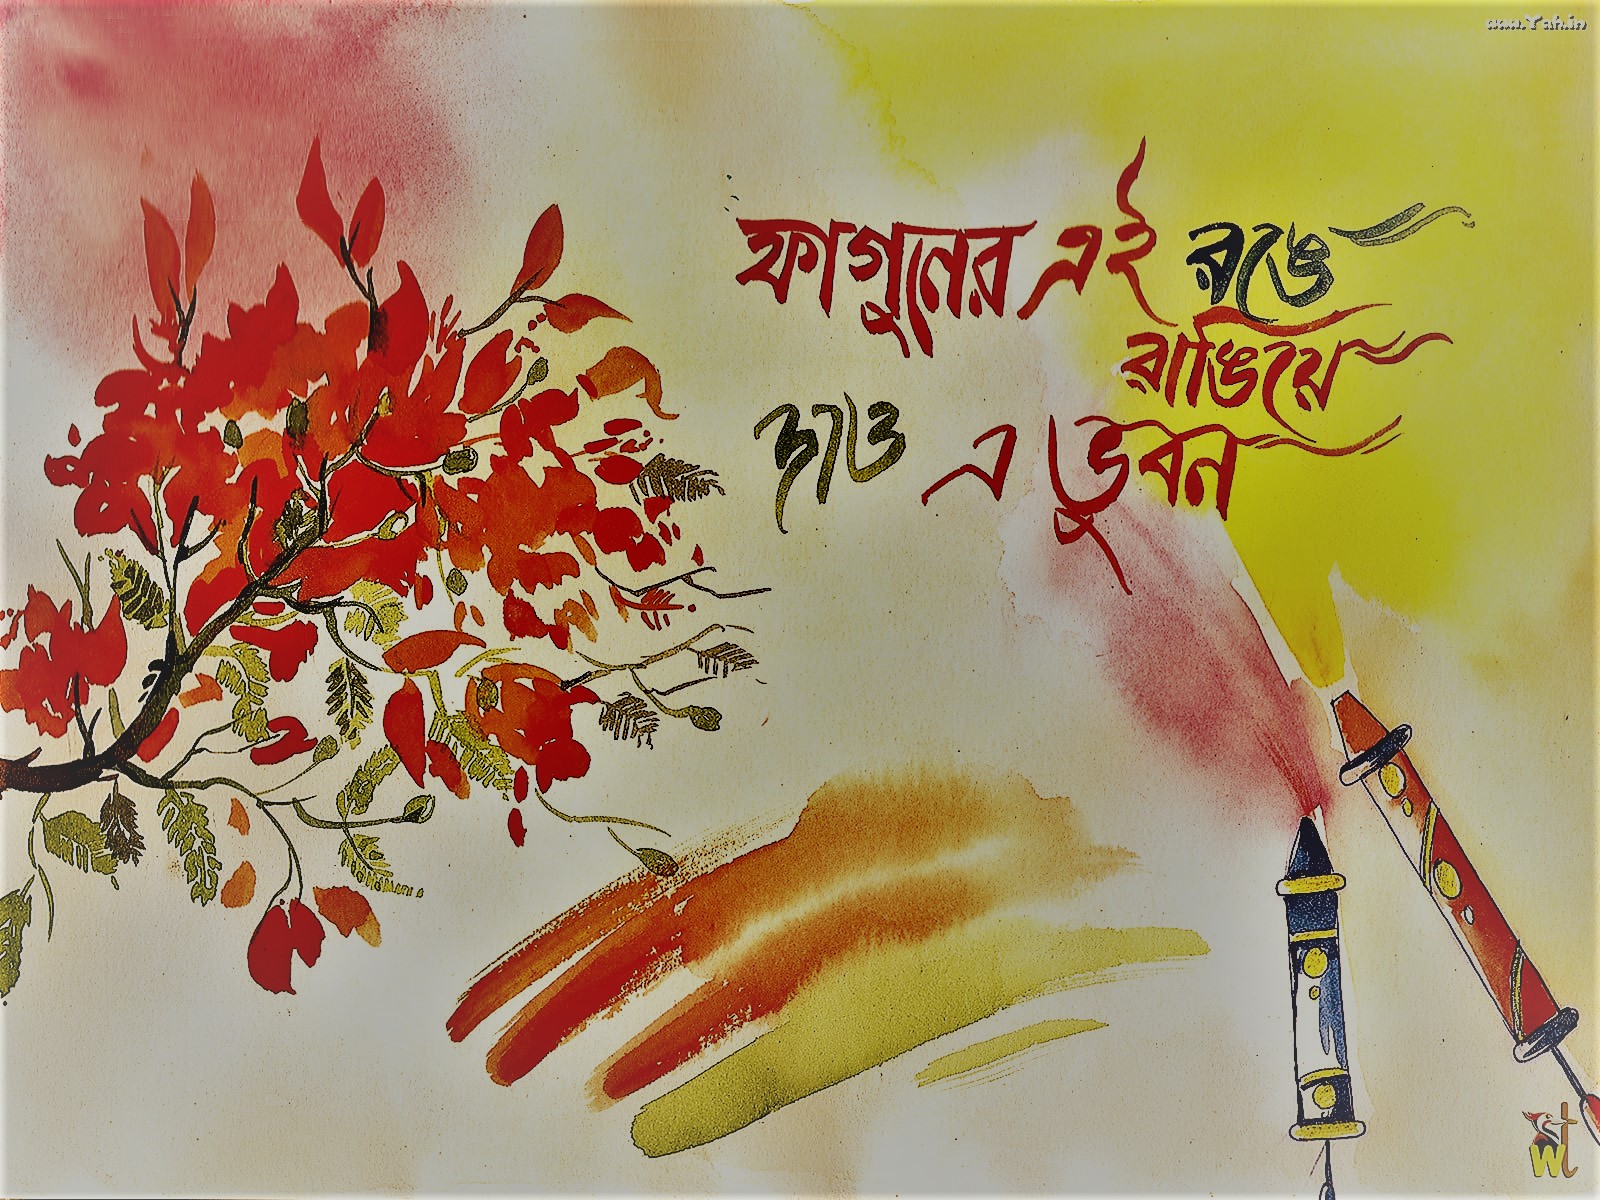 www.Yah.in
ফাগুনের এই রঙে
রাঙিয়ে
দাও এ ভুবন